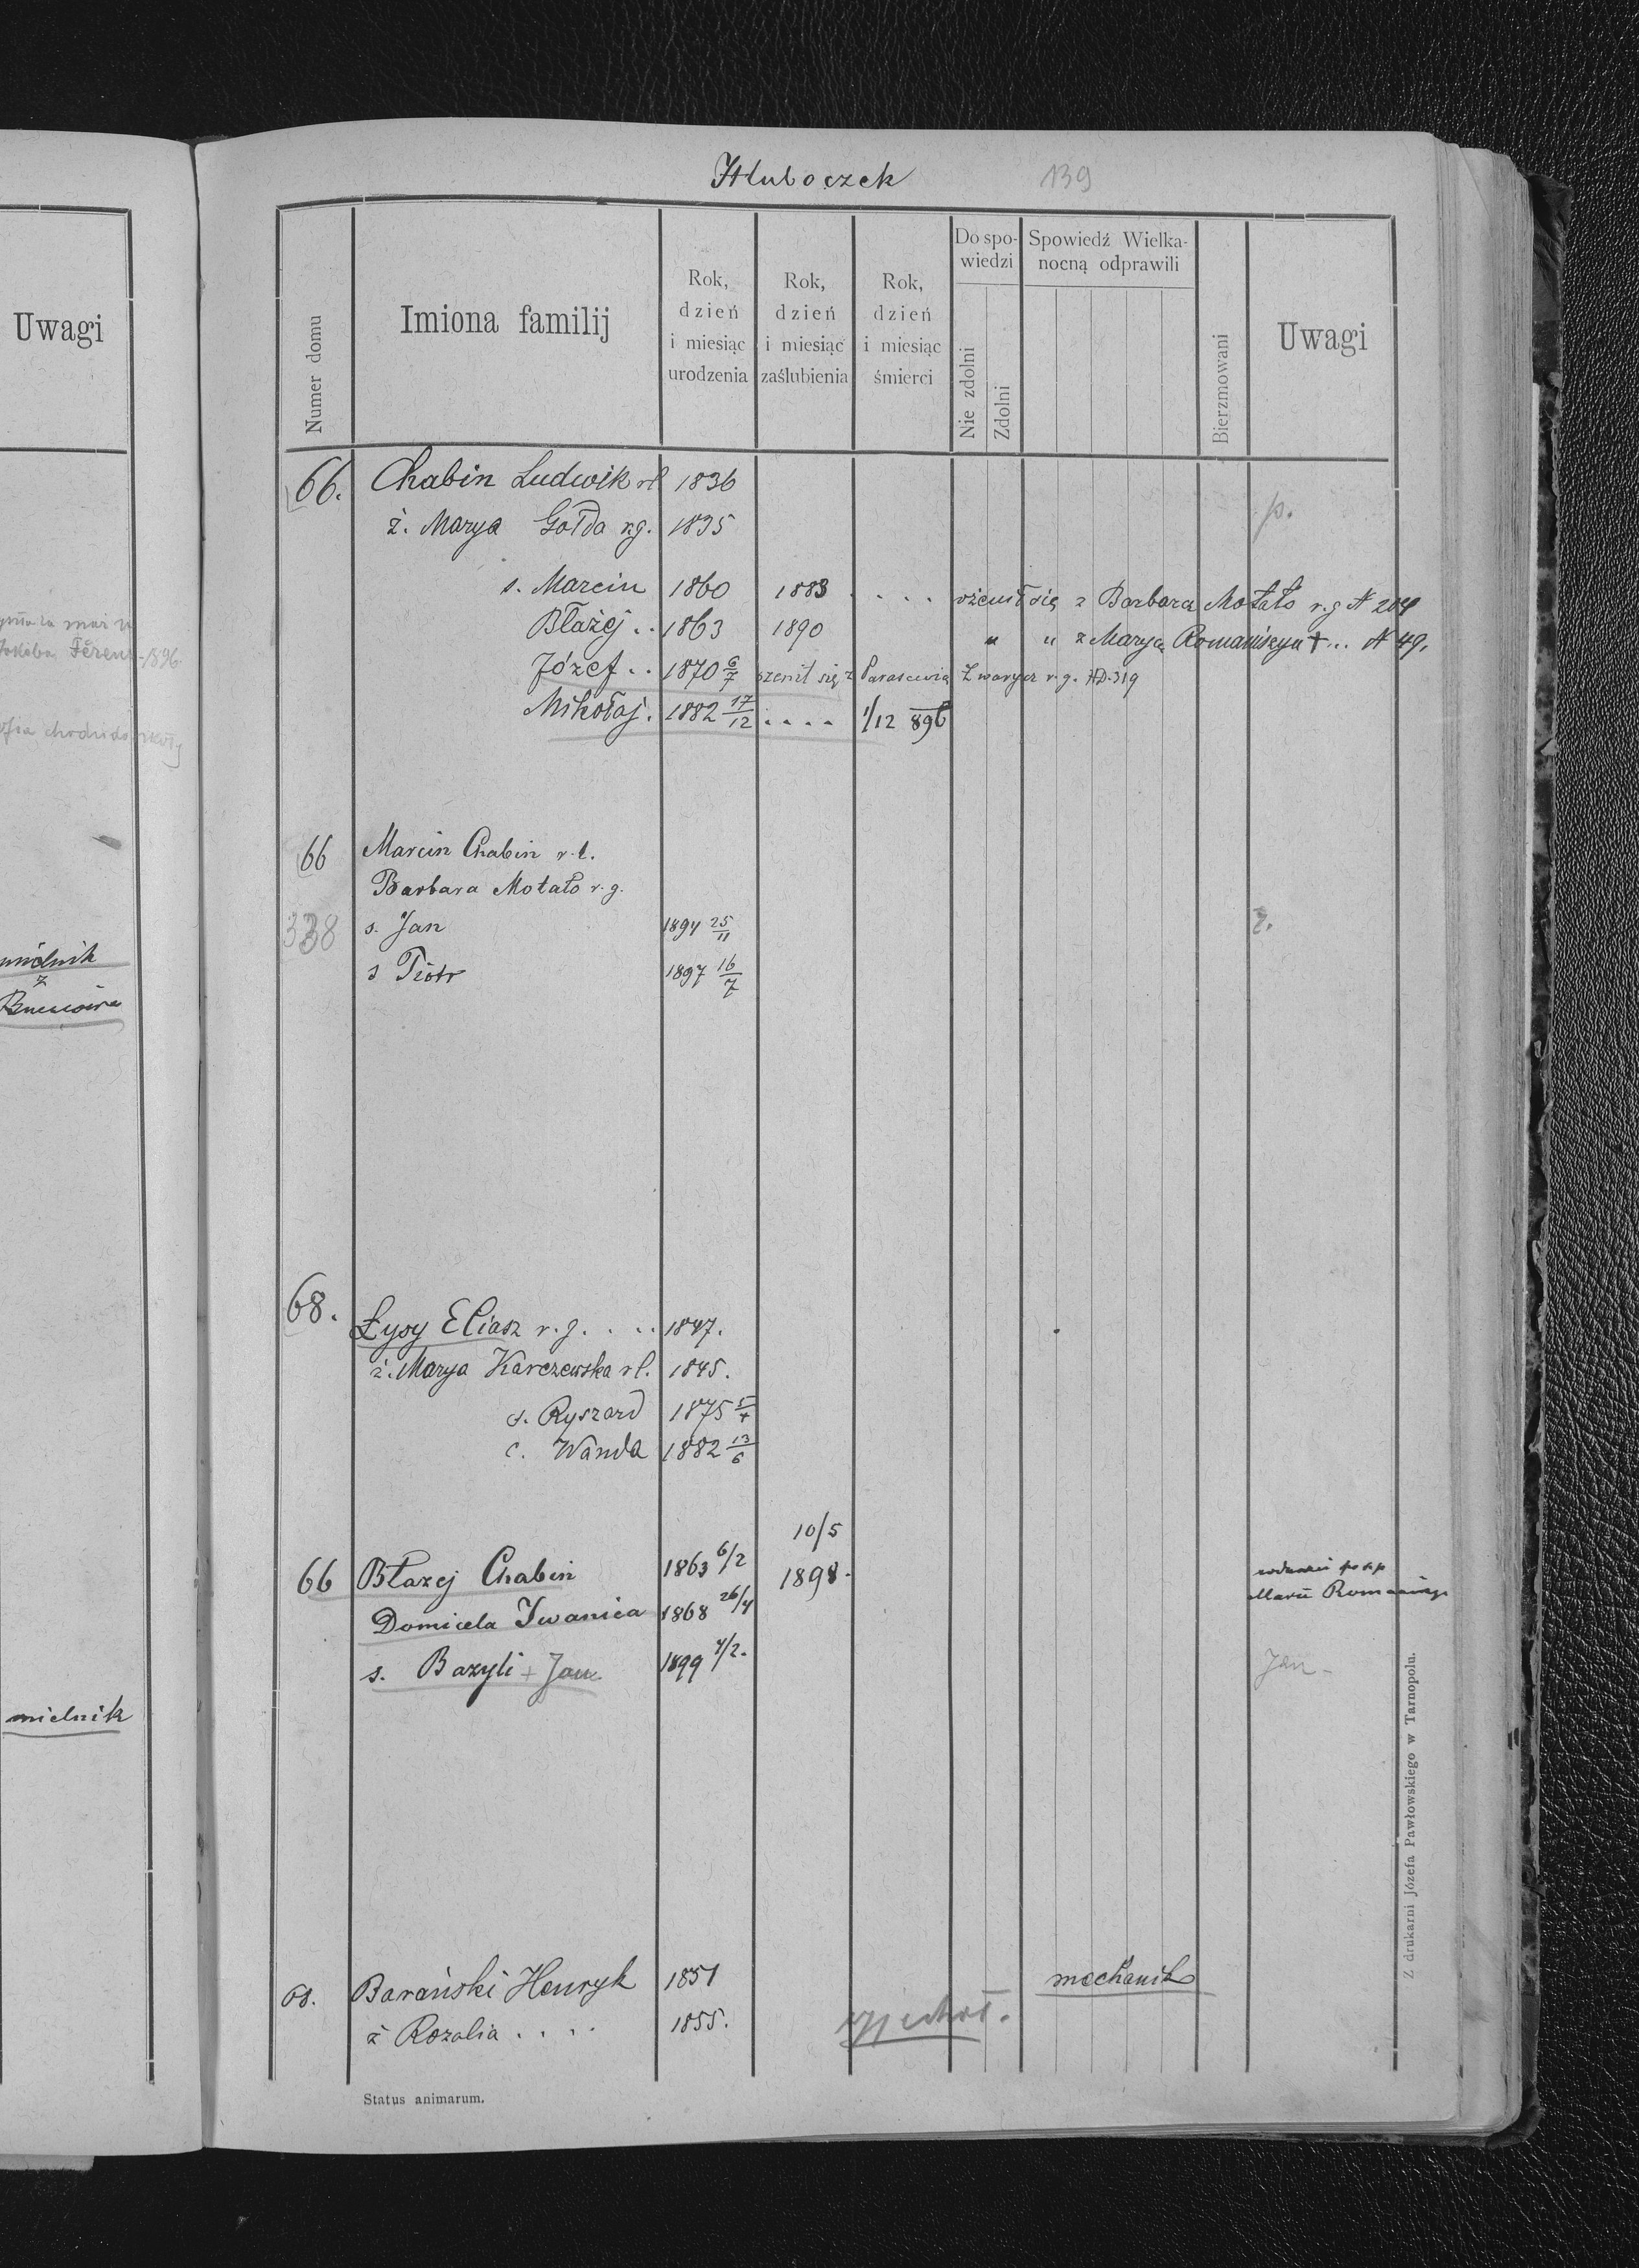 Hluboczek 139
Uwagi
Numer domu
Imiona familij
Rok, dzień i miesiąc urodzenia
Rok, dzień i miesiąc zaślubienia
Rok, dzień i miesiąc śmierci
Do spowiedzi
Nie zdolni
Zdolni
Spowiedź Wielkanocną odprawili
Bierzmowani
Uwagi
66. Chabin Ludwik rl 1836
ż. Marya Gołda rg. 1835 p.
s. Marcin 1860 1883 . . . . ożenił się z Barbara Motało r.g N 204
Błażej .. 1863 1890 " " z Maryą Romaniszyn + ... N 49.
Józef .. 1870 6/7 ożenił się z Parascewią Zwarycz r.g. HD.319
Mikołaj. 1882 17/12 . . . . 1/12 896
66 Marcin Chabin r.l.
Barbara Motało r.g.
338 s. Jan 1894 25/11
s Piotr 1897 16/7
68. Łysy Eliasz r.g. . . .. 1847.
ż. Marya Karczewska rl. 1845.
s. Ryszard 1875
c. Wanda 1882 13/6
10/5
66 Błazej Chabin 1863 6/2 1898.
Marii
Domicela Iwanica 1868 26/4
s. Bazyli + Jan 1899 4/2. Jan -
Barański Henryk 1851 mechanik
ż Rozalia . . . . 1855.
Status animarum.
Z drukarni Józefa Pawłowskiego w Tarnopolu.
1896
mielnik